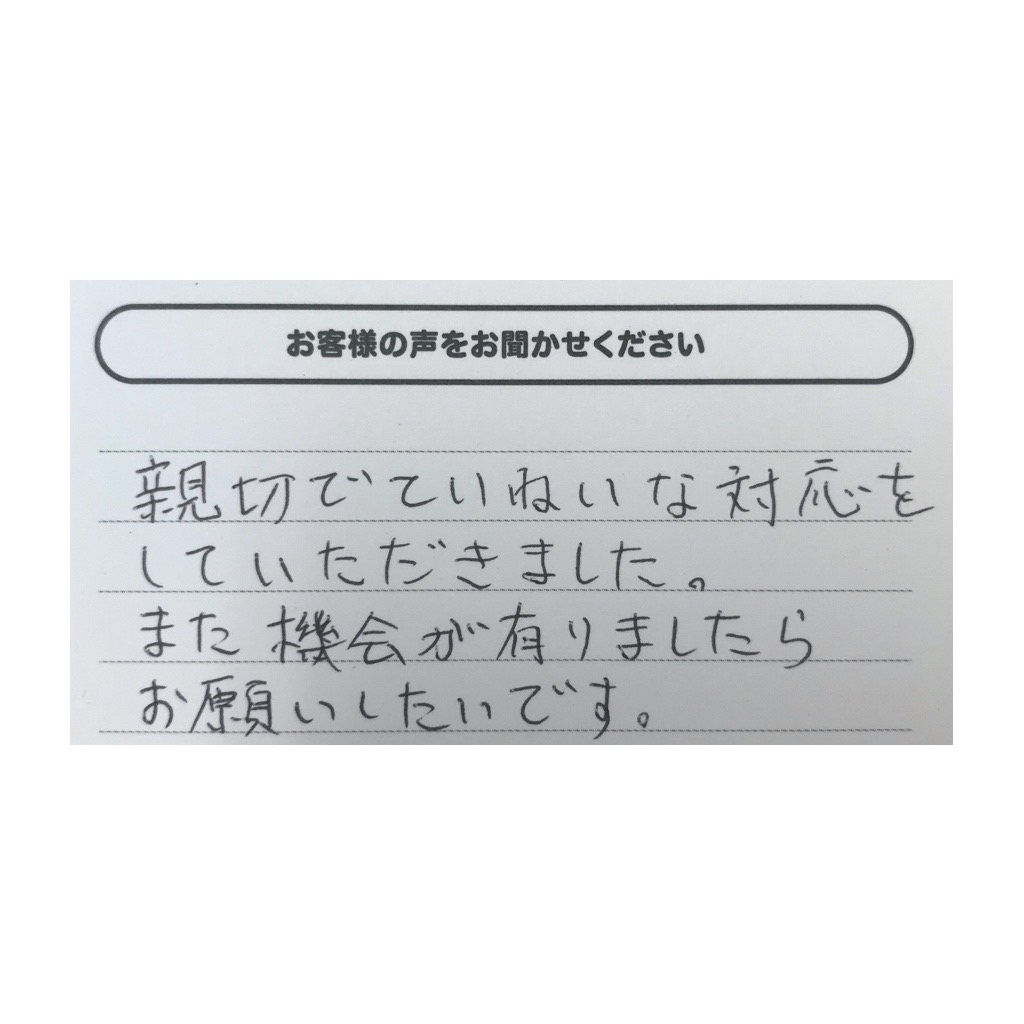 お客様の声をお聞かせください
親切でていねいな対応を
していただきました。
また機会が有りましたら
お願いしたいです。